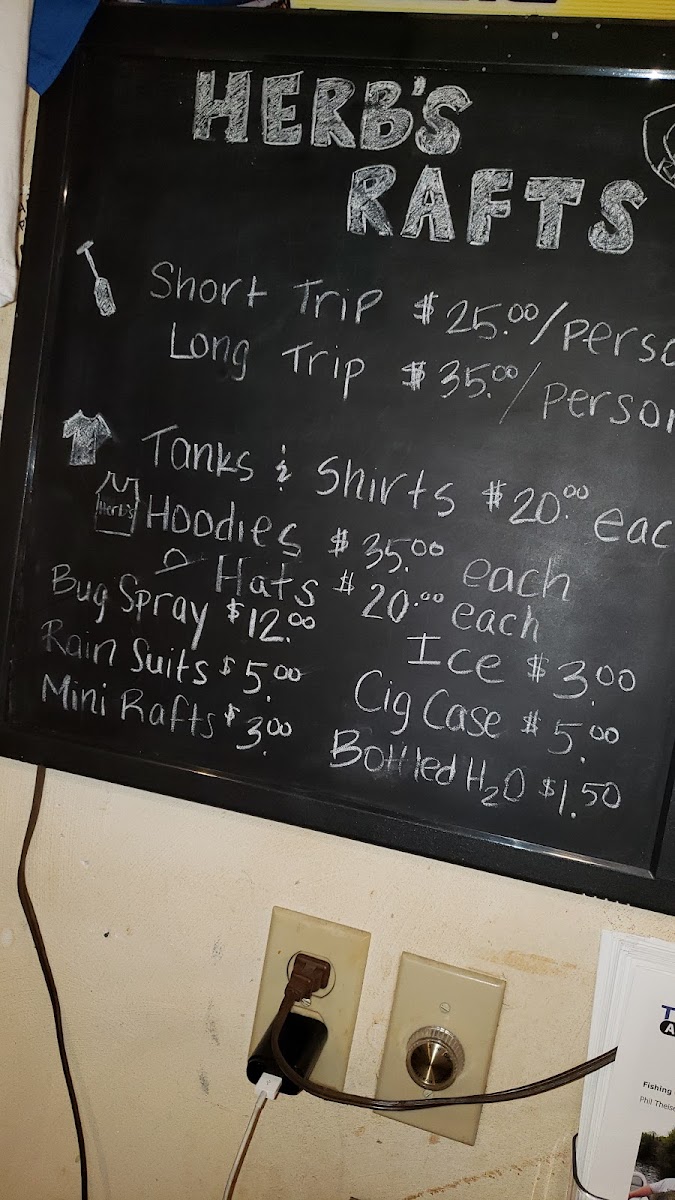 HERB'S
RAFTS
Short Trip $25.00/perso
Long Trip $35.00/person
Tanks & Shirts $20.00 eac
Herb's
Hoodies $35.00 each
Hats $20.00 each
Bug Spray $12.00
Rain Suits $5.00
Mini Rafts $3.00
Ice $3.00
Cig Case $5.00
Bottled H2O $1.50
T
A
Fishing
Phil